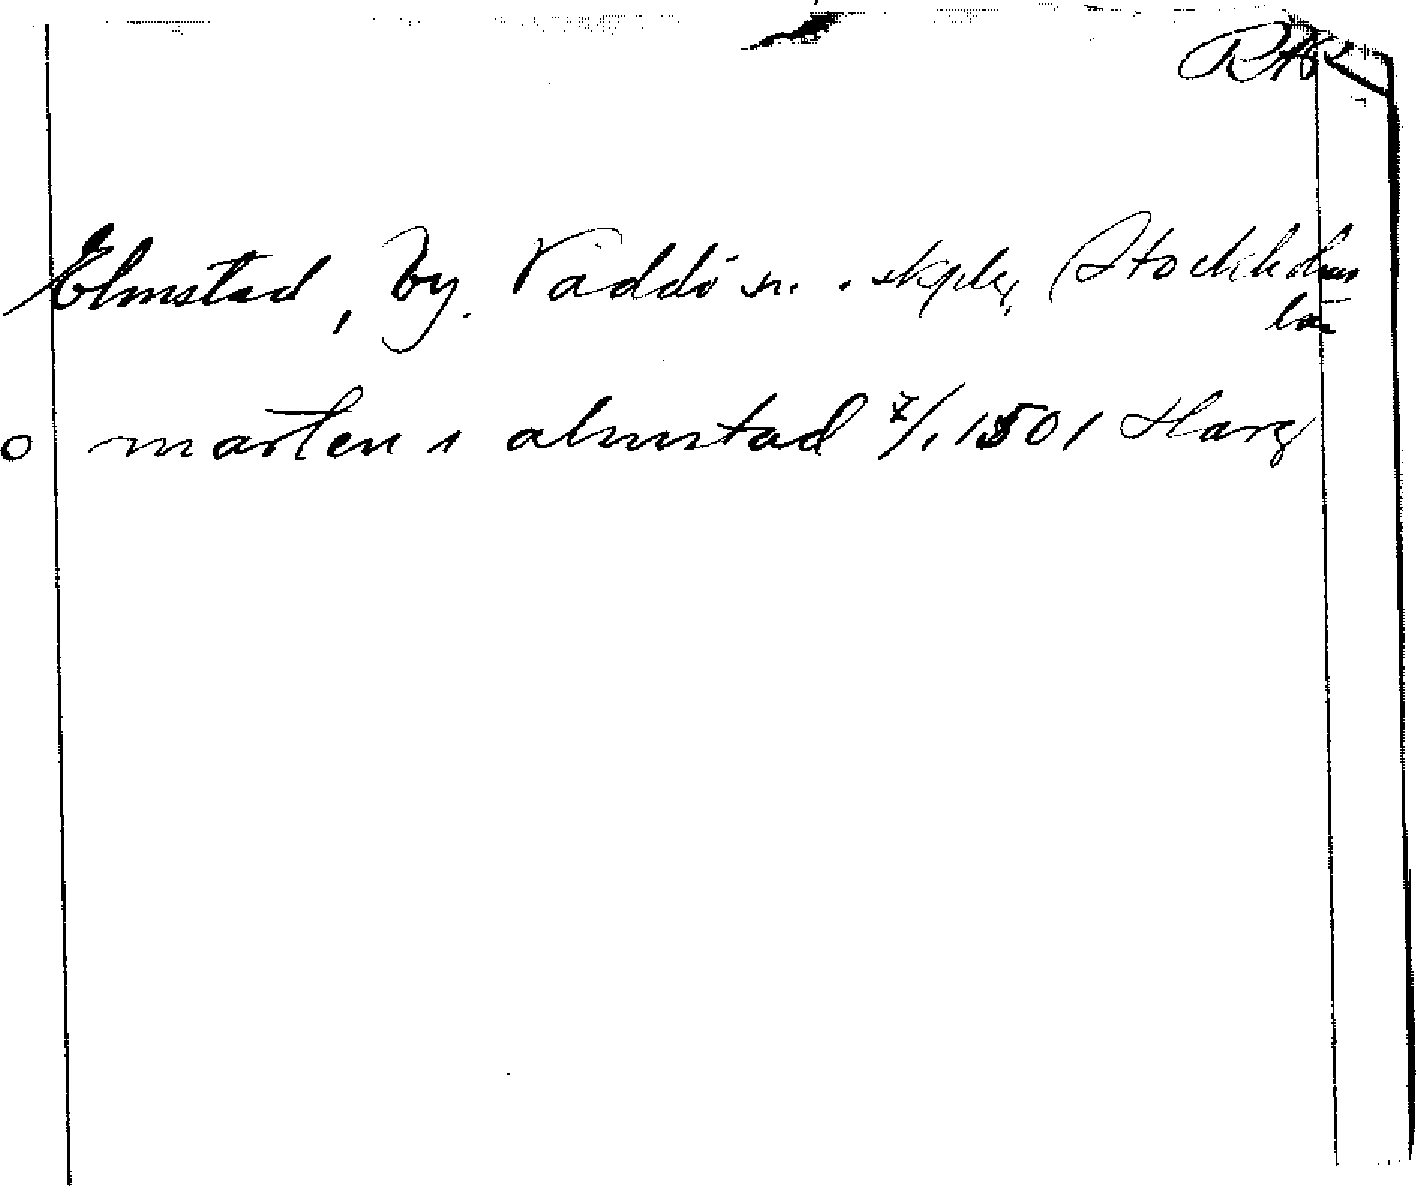 Elmstad, by. Väddö sn. o skplg, Stockholms
län
o marten i almstad 7/1 1501 Harg